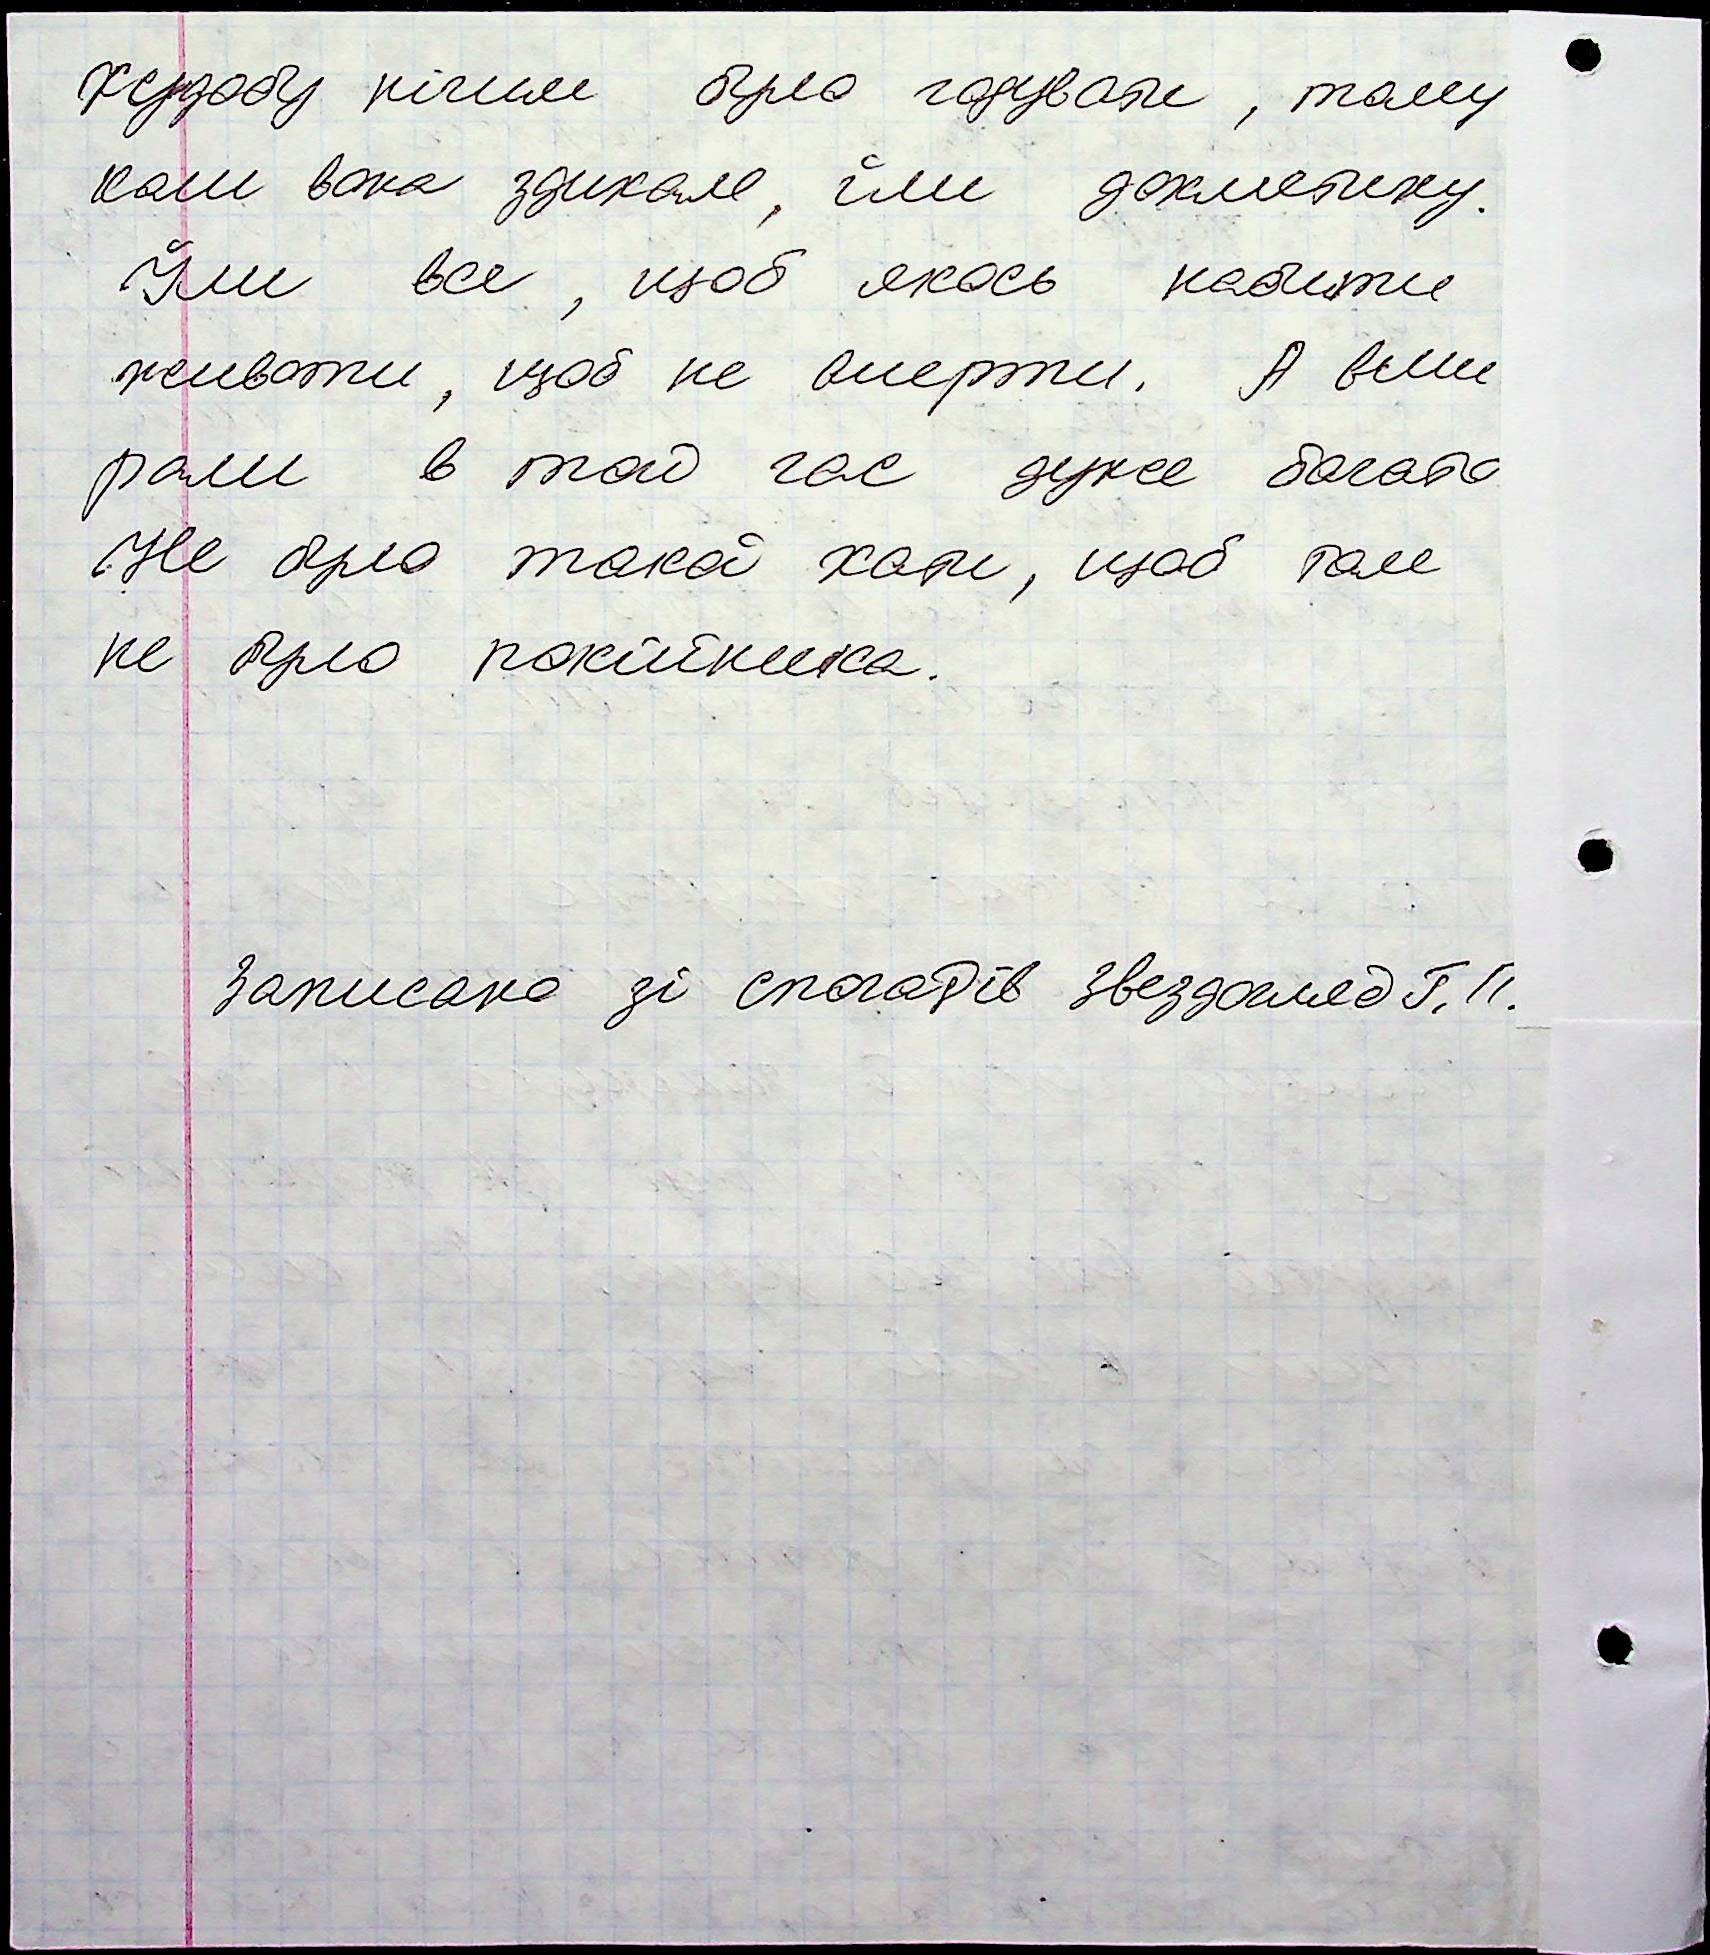 Худобу нічим було годувати, тому
коли вона здихала, їли дохлятину.
Їли все, щоб якось набити
животи, щоб не вмерти. А вми
рали в той час дуже багато
Не було такої хати, щоб там
не було покійника.
Записано зі спогадів Звездогляд Г. П.